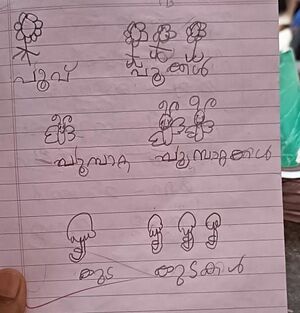 പൂവ് പൂക്കൾ
പൂമ്പാറ്റ പൂമ്പാറ്റകൾ
കുട കുടകൾ